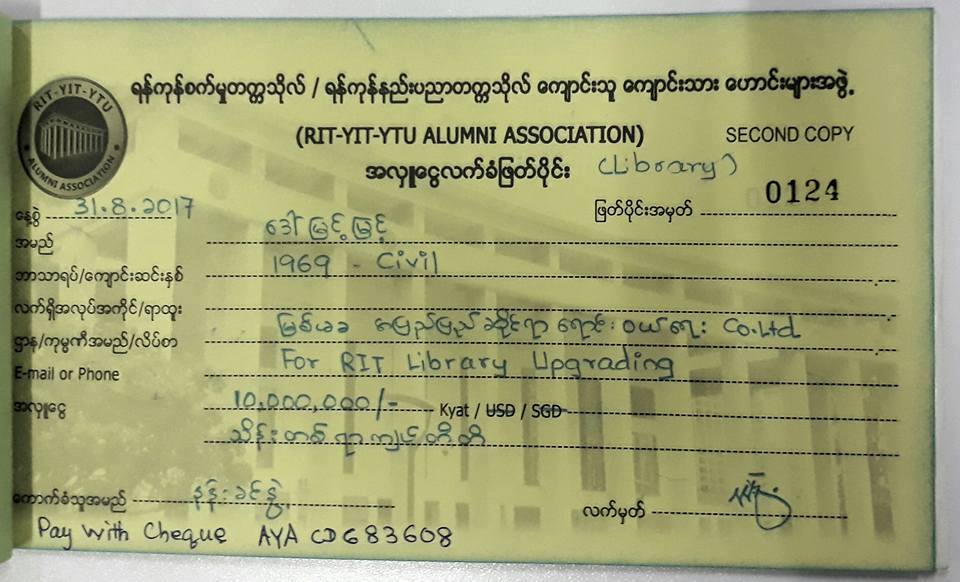 RIT-YIT-YTU
ALUMNI ASSOCIATION
ရန်ကုန်စက်မှုတက္ကသိုလ် / ရန်ကုန်နည်းပညာတက္ကသိုလ် ကျောင်းသူ ကျောင်းသား ဟောင်းများအဖွဲ့
(RIT-YIT-YTU ALUMNI ASSOCIATION) SECOND COPY
အလှူငွေလက်ခံဖြတ်ပိုင်း (Library)
နေ့စွဲ 31.8.2017 ဖြတ်ပိုင်းအမှတ် 0124
အမည် ဒေါ်မြင့်မြင့်
ဘာသာရပ်/ကျောင်းဆင်းနှစ် 1969 - Civil
လက်ရှိအလုပ်အကိုင်/ရာထူး
ဌာန/ကုမ္ပဏီအမည်/လိပ်စာ ရောင်းဝယ်ရေး Co.Ltd
E-mail or Phone For RIT Library Upgrading
အလှူငွေ 10,000,000/- Kyat / USD / SGD
သိန်းတစ်ရာကျပ်တိတိ
ကောက်ခံသူအမည် နန်းခင်နွဲ့ လက်မှတ်
Pay With Cheque AYA CD683608